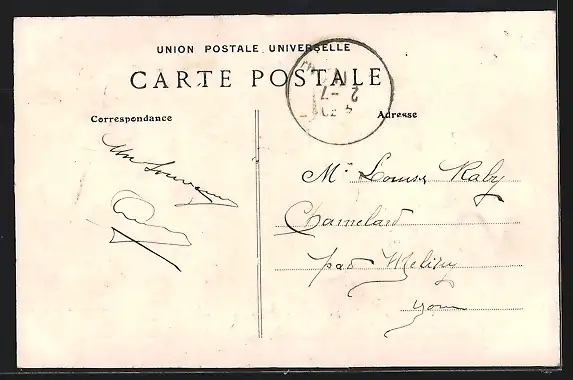 UNION POSTALE UNIVERSELLE
CARTE POSTALE
Correspondance
Adresse
Un Souvenir
Mr Louise Raby
Chamelard
par Melisey
Yonne